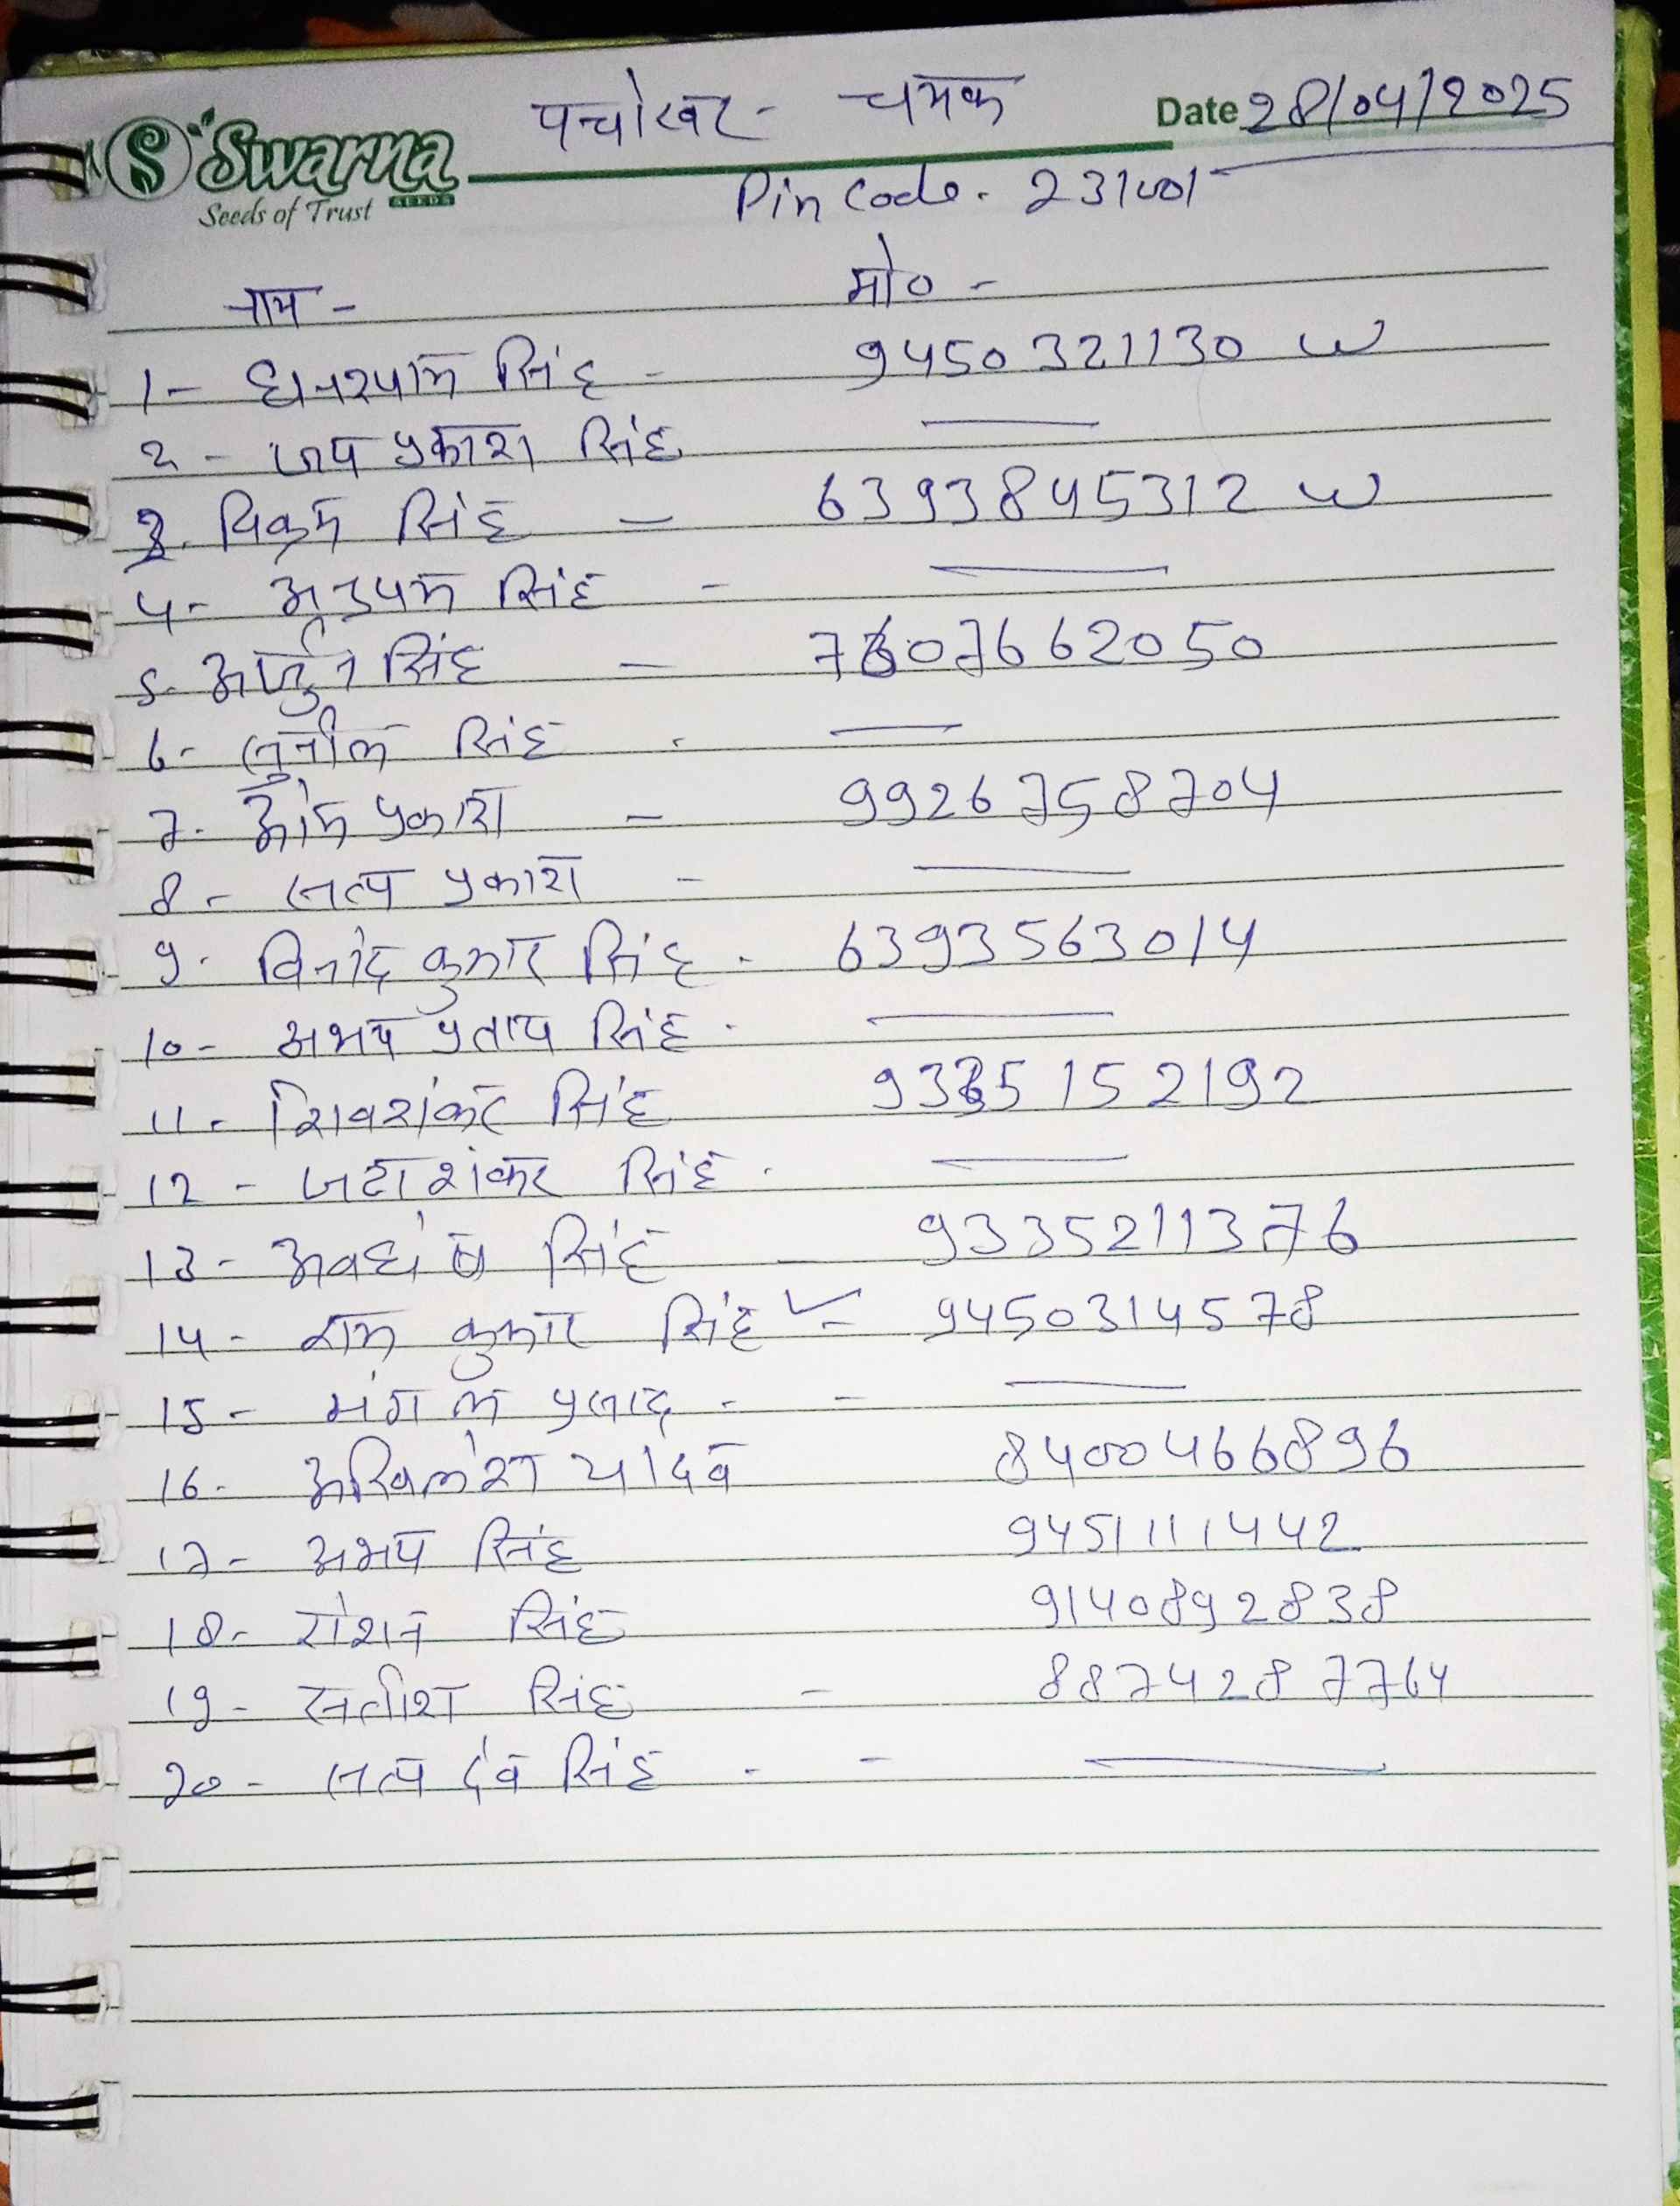 Swarna
SEEDS
Seeds of Trust
पचोखर - चमक
Date 28/04/2025
Pin Code. 231001
नाम - मो० -
1- घनश्याम सिंह - 9450321130 W
2- जय प्रकाश सिंह ——
3. विक्रम सिंह - 6393845312 W
4- अनुपम सिंह - ——
5- अर्जुन सिंह - 7607662050
6- सुनील सिंह - ——
7- ओम प्रकाश - 9926758704
8- सत्य प्रकाश - ——
9- विनोद कुमार सिंह - 6393563014
10- अभय प्रताप सिंह - ——
11- शिवशंकर सिंह 9335152192
12- जटाशंकर सिंह - ——
13- अवधेश सिंह - 9335211376
14- राम कुमार सिंह ✓- 9450314578
15- मंगल प्रसाद - - ——
16- अखिलेश यादव 8400466896
17- अभय सिंह 9451111442
18- रोशन सिंह 9140892838
19- सतीश सिंह - 8874287764
20- सत्य देव सिंह - - ——